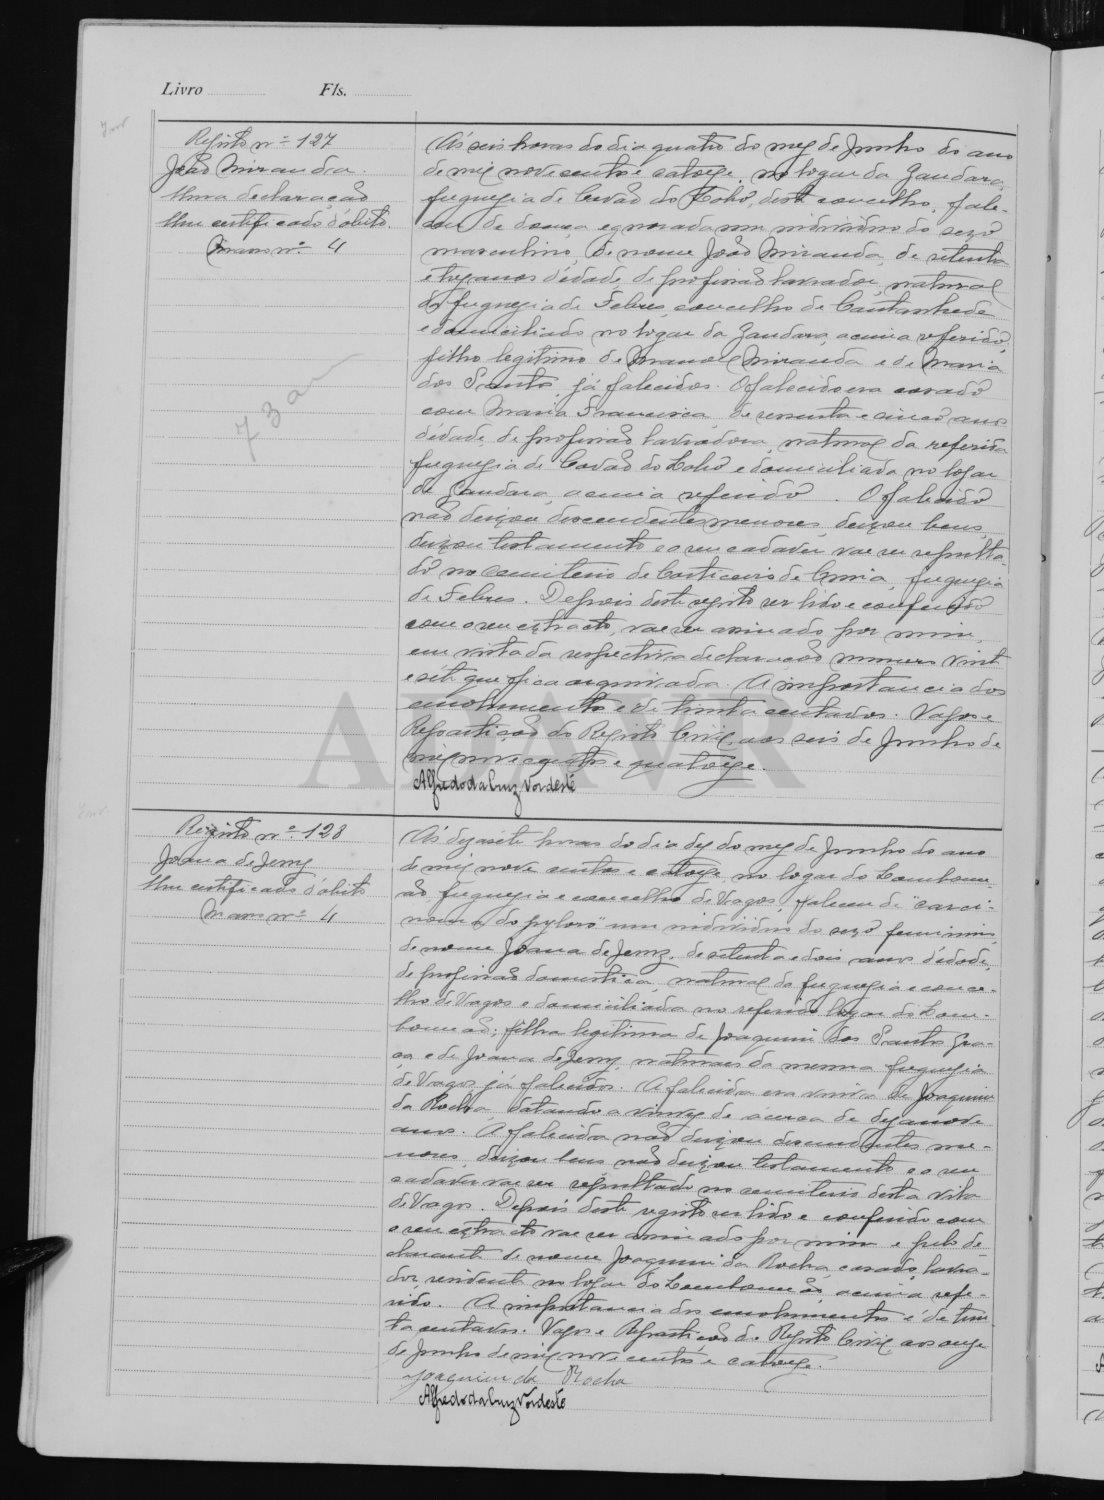 Livro Fls.
Registo nº 127
João Miranda.
Uma declaração
Um certificado d'óbito.
Maço nº 4
73 an
Ás seis horas do dia quatro do mez de Junho do ano
de mil novecentos e catorze, no logar da Gandara,
freguezia de Covão do Lobo, deste concelho, fale-
ceu de doença egnorada um individuo do sexo
masculino, de nome João Miranda, de setenta
e trez anos d'edade, de profissão lavrador, natural
da freguezia de Febres, concelho de Cantanhede
e domiciliado no logar da Gandara, acima referido,
filho legitimo de Manoel Miranda e de Maria
dos Santos, já falecidos. O falecido era casado
com Maria Francisca, de sessenta e cinco anos
d'edade, de profissão lavradora, natural da referida
freguezia de Covão do Lobo e domiciliada no logar
da Gandara, acima referido. O falecido
não deixou descendentes menores, deixou bens,
deixou testamento e o seu cadaver vae ser sepulta-
do no cemiterio de Corticeiro de Cima, freguezia
de Febres. Depois deste registo ser lido e conferido
com o seu extracto, vae ser assinado por mim,
em vista da respectiva declaração numero vinte
e séte que fica arquivada. A importancia dos
emolumentos é de trinta centavos. Vagos e
Repartição do Registo Civil, aos seis de Junho de
mil novecentos e quatorze.
Alfredo da Cruz Nordeste
ADAVR
Registo nº 128
Joana de Jezus
Um certificado d'óbito
Maço nº 4
Ás dezasete horas do dia dez do mez de Junho do ano
de mil nove centos e catorze no logar do Lombome-
ão, freguezia e concelho de Vagos, faleceu de "carci-
noma do pyloro" um individuo do sexo feminino,
de nome Joana de Jezus, de setenta e dois anos d'edade,
de profissão domestica, natural da freguezia e conce-
lho de Vagos e domiciliada no referido logar do Lom-
bomeão; filha legitima de Joaquim dos Santos
e de Joana de Jezus, naturaes da mesma freguezia
de Vagos, já falecidos. A falecida era viuva de Joaquim
da Rocha, datando a viuvez de ácerca de dezanove
anos. A falecida não deixou descendentes me-
nores, deixou bens, não deixou testamento e o seu
cadaver vae ser sepultado no cemiterio desta vila
de Vagos. Depois deste registo ser lido e conferido com
o seu extracto vae ser assinado por mim e pelo de-
clarante de nome Joaquim da Rocha, casado, lavra-
dor, residente no logar do Lombomeão, acima refe-
rido. A importancia dos emolumentos é de trin-
ta centavos. Vagos e Repartição do Registo Civil, aos onze
de Junho de mil nove centos e catorze.
Joaquim da Rocha
Alfredo da Cruz Nordeste